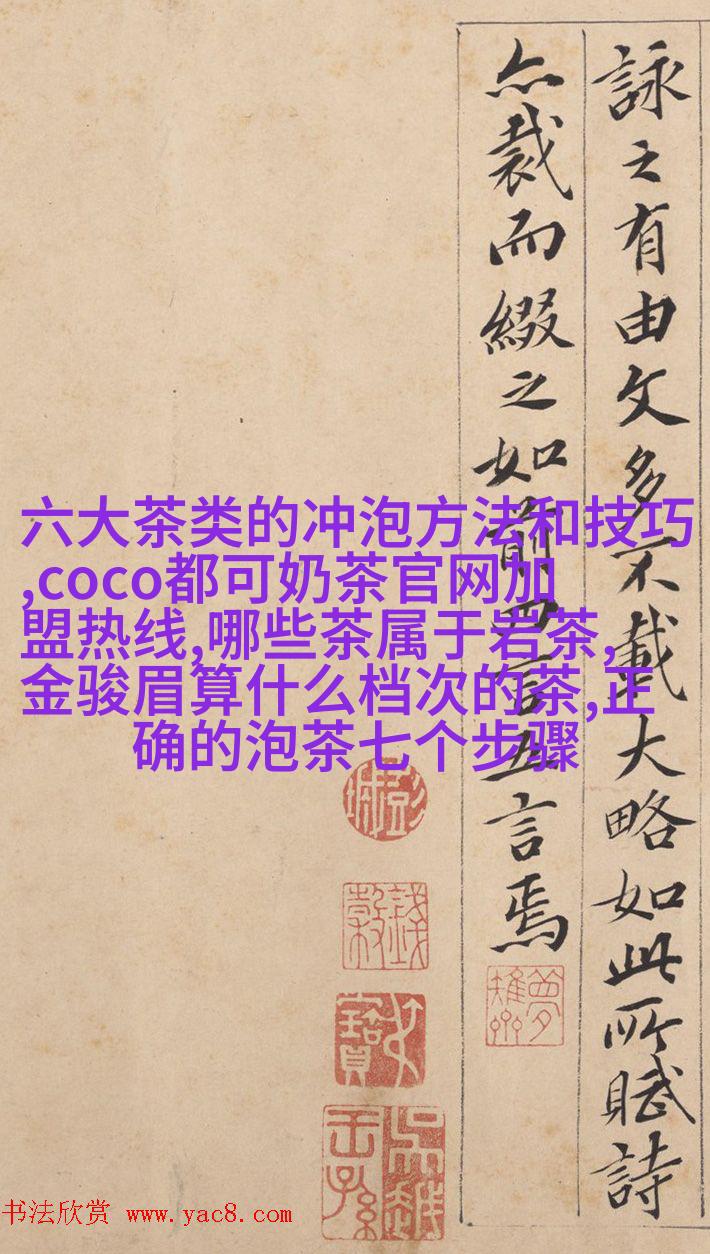 詠之有由文多不載大略如此所賦詩
亦裁而綴之如前四言五言焉
六大茶类的冲泡方法和技巧
,coco都可奶茶官网加
盟热线,哪些茶属于岩茶,
金骏眉算什么档次的茶,正
确的泡茶七个步骤
书法欣赏 www.yac8.com